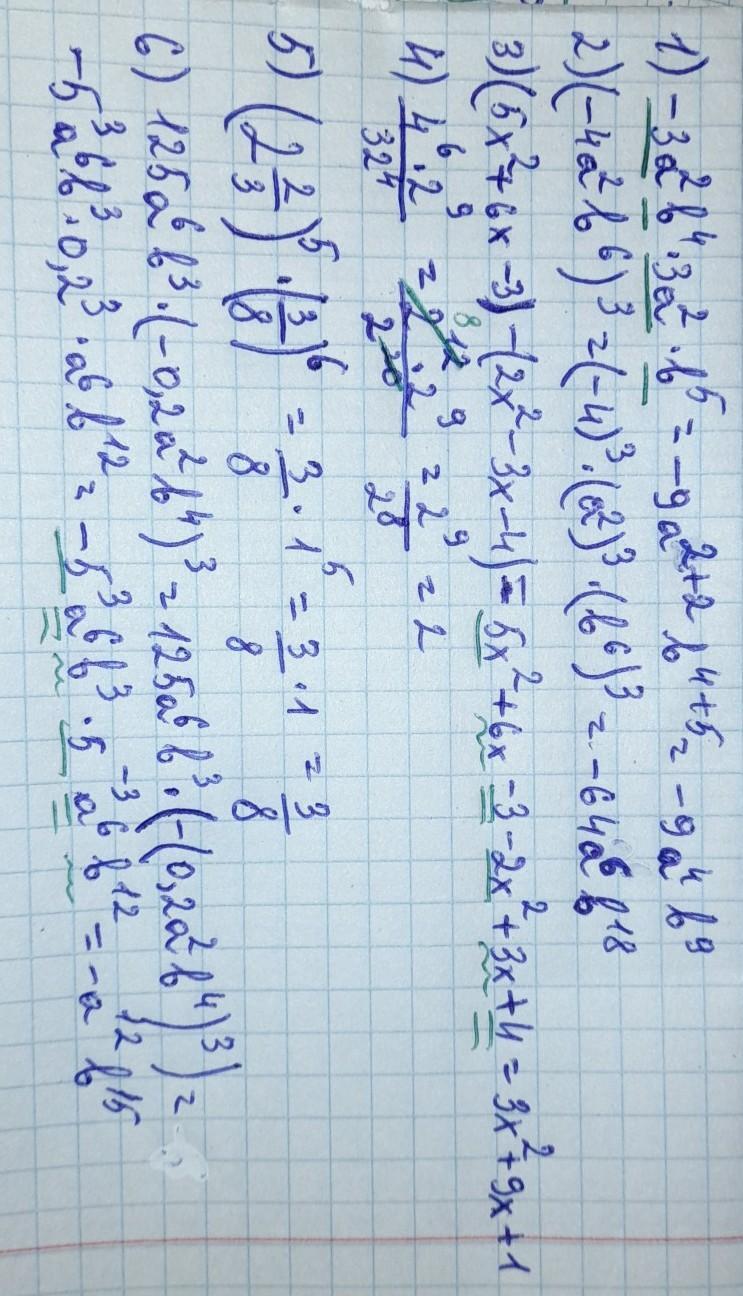 1) -3a²b⁴·3a²·b⁵ = -9a²⁺²b⁴⁺⁵ = -9a⁴b⁹
2) (-4a²b⁶)³ = (-4)³·(a²)³·(b⁶)³ = -64a⁶b¹⁸
3) (5x²+6x-3)-(2x²-3x-4) = 5x²+6x-3-2x²+3x+4 = 3x²+9x+1
4) 4⁶·2⁹/32⁴ = 2¹²·2⁹/2²⁰ 8 = 2⁹/2⁸ = 2
5) (2 2/3)⁵·(3/8)⁶ = 3/8·1⁵ = 3/8·1 = 3/8
6) 125a⁶b³·(-0,2a²b⁴)³ = 125a⁶b³·(-(0,2a²b⁴)³) =
-5³a⁶b³·0,2³·a⁶b¹² = -5³a⁶b³·5⁻³a⁶b¹² = -a¹²b¹⁵